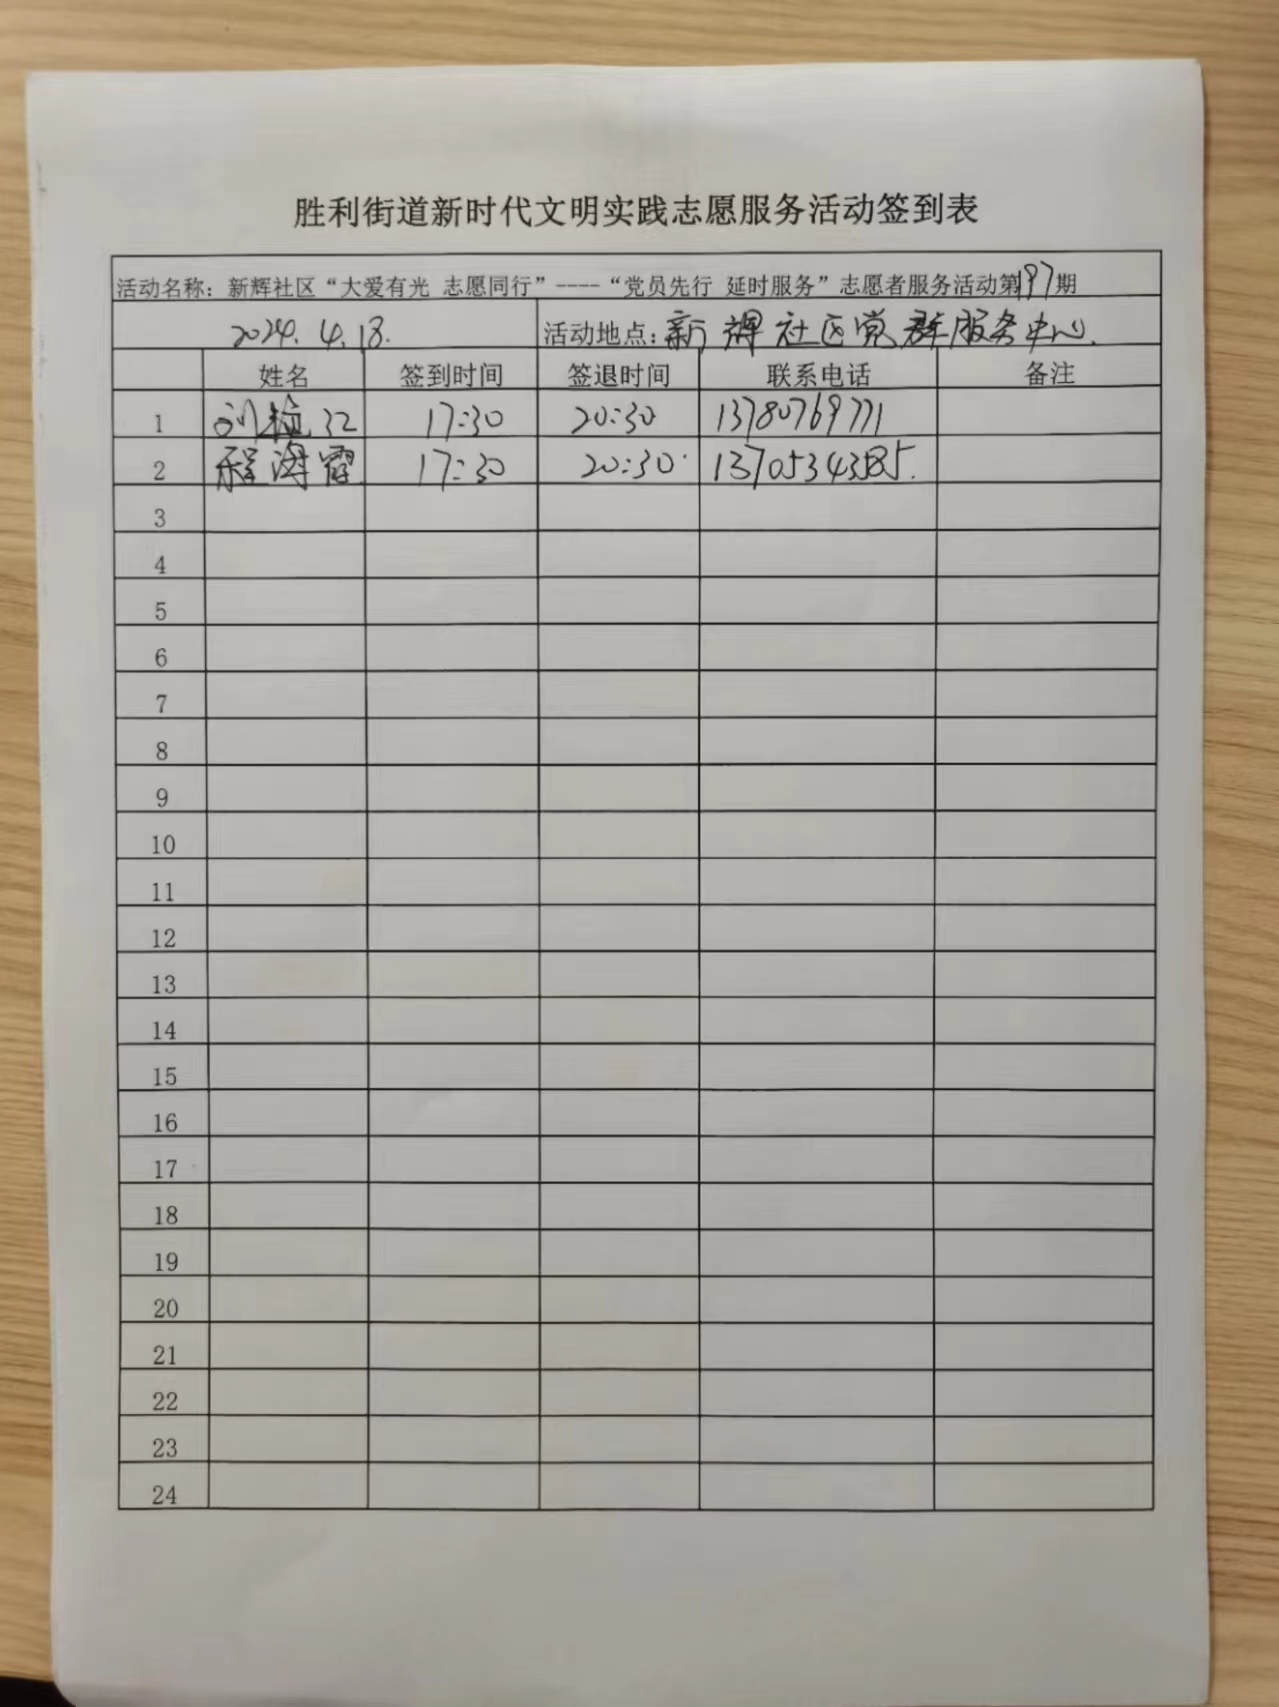 胜利街道新时代文明实践志愿服务活动签到表
活动名称：新辉社区“大爱有光 志愿同行”----“党员先行 延时服务”志愿者服务活动第197期
2024.4.18. 活动地点：新辉社区党群服务中心.
姓名 签到时间 签退时间 联系电话 备注
1 刘 17:30 20:30 13780769771
2 程海霞 17:30 20:30 137053435
3
4
5
6
7
8
9
10
11
12
13
14
15
16
17
18
19
20
21
22
23
24